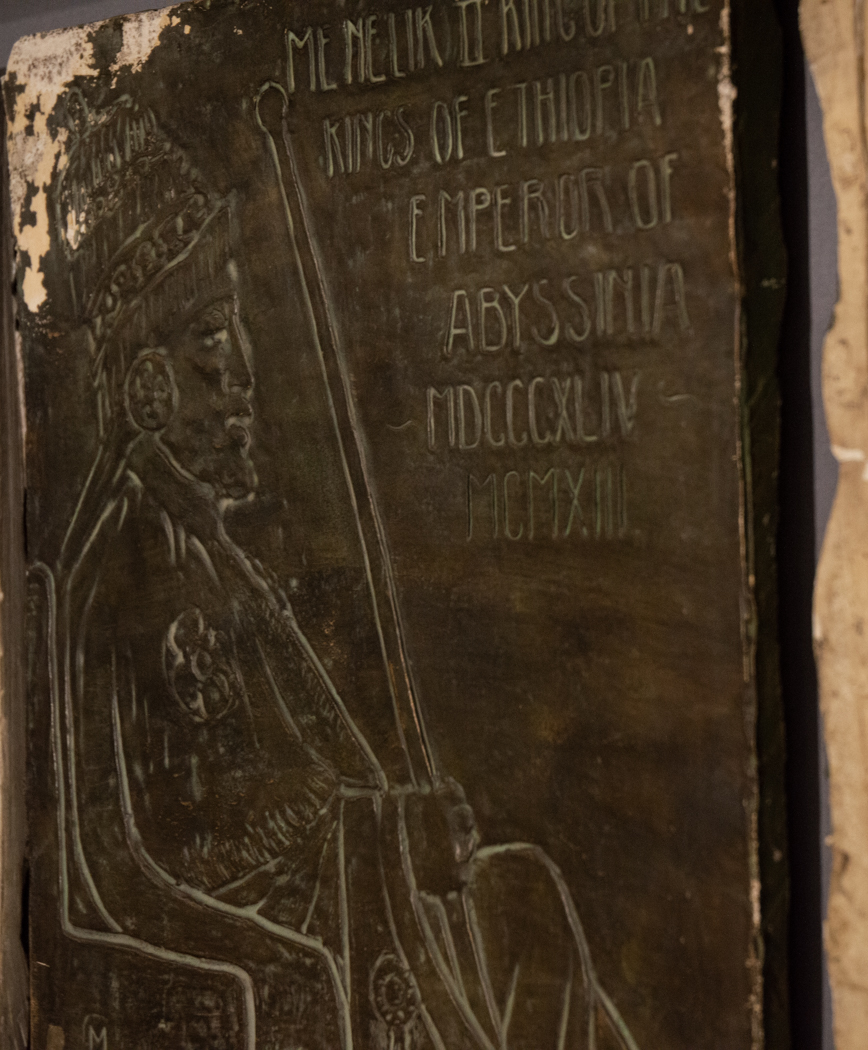 MENELIK II KING OF THE
KINGS OF ETHIOPIA
EMPEROR OF
ABYSSINIA
~ MDCCCXLIV ~
MCMXIII
M